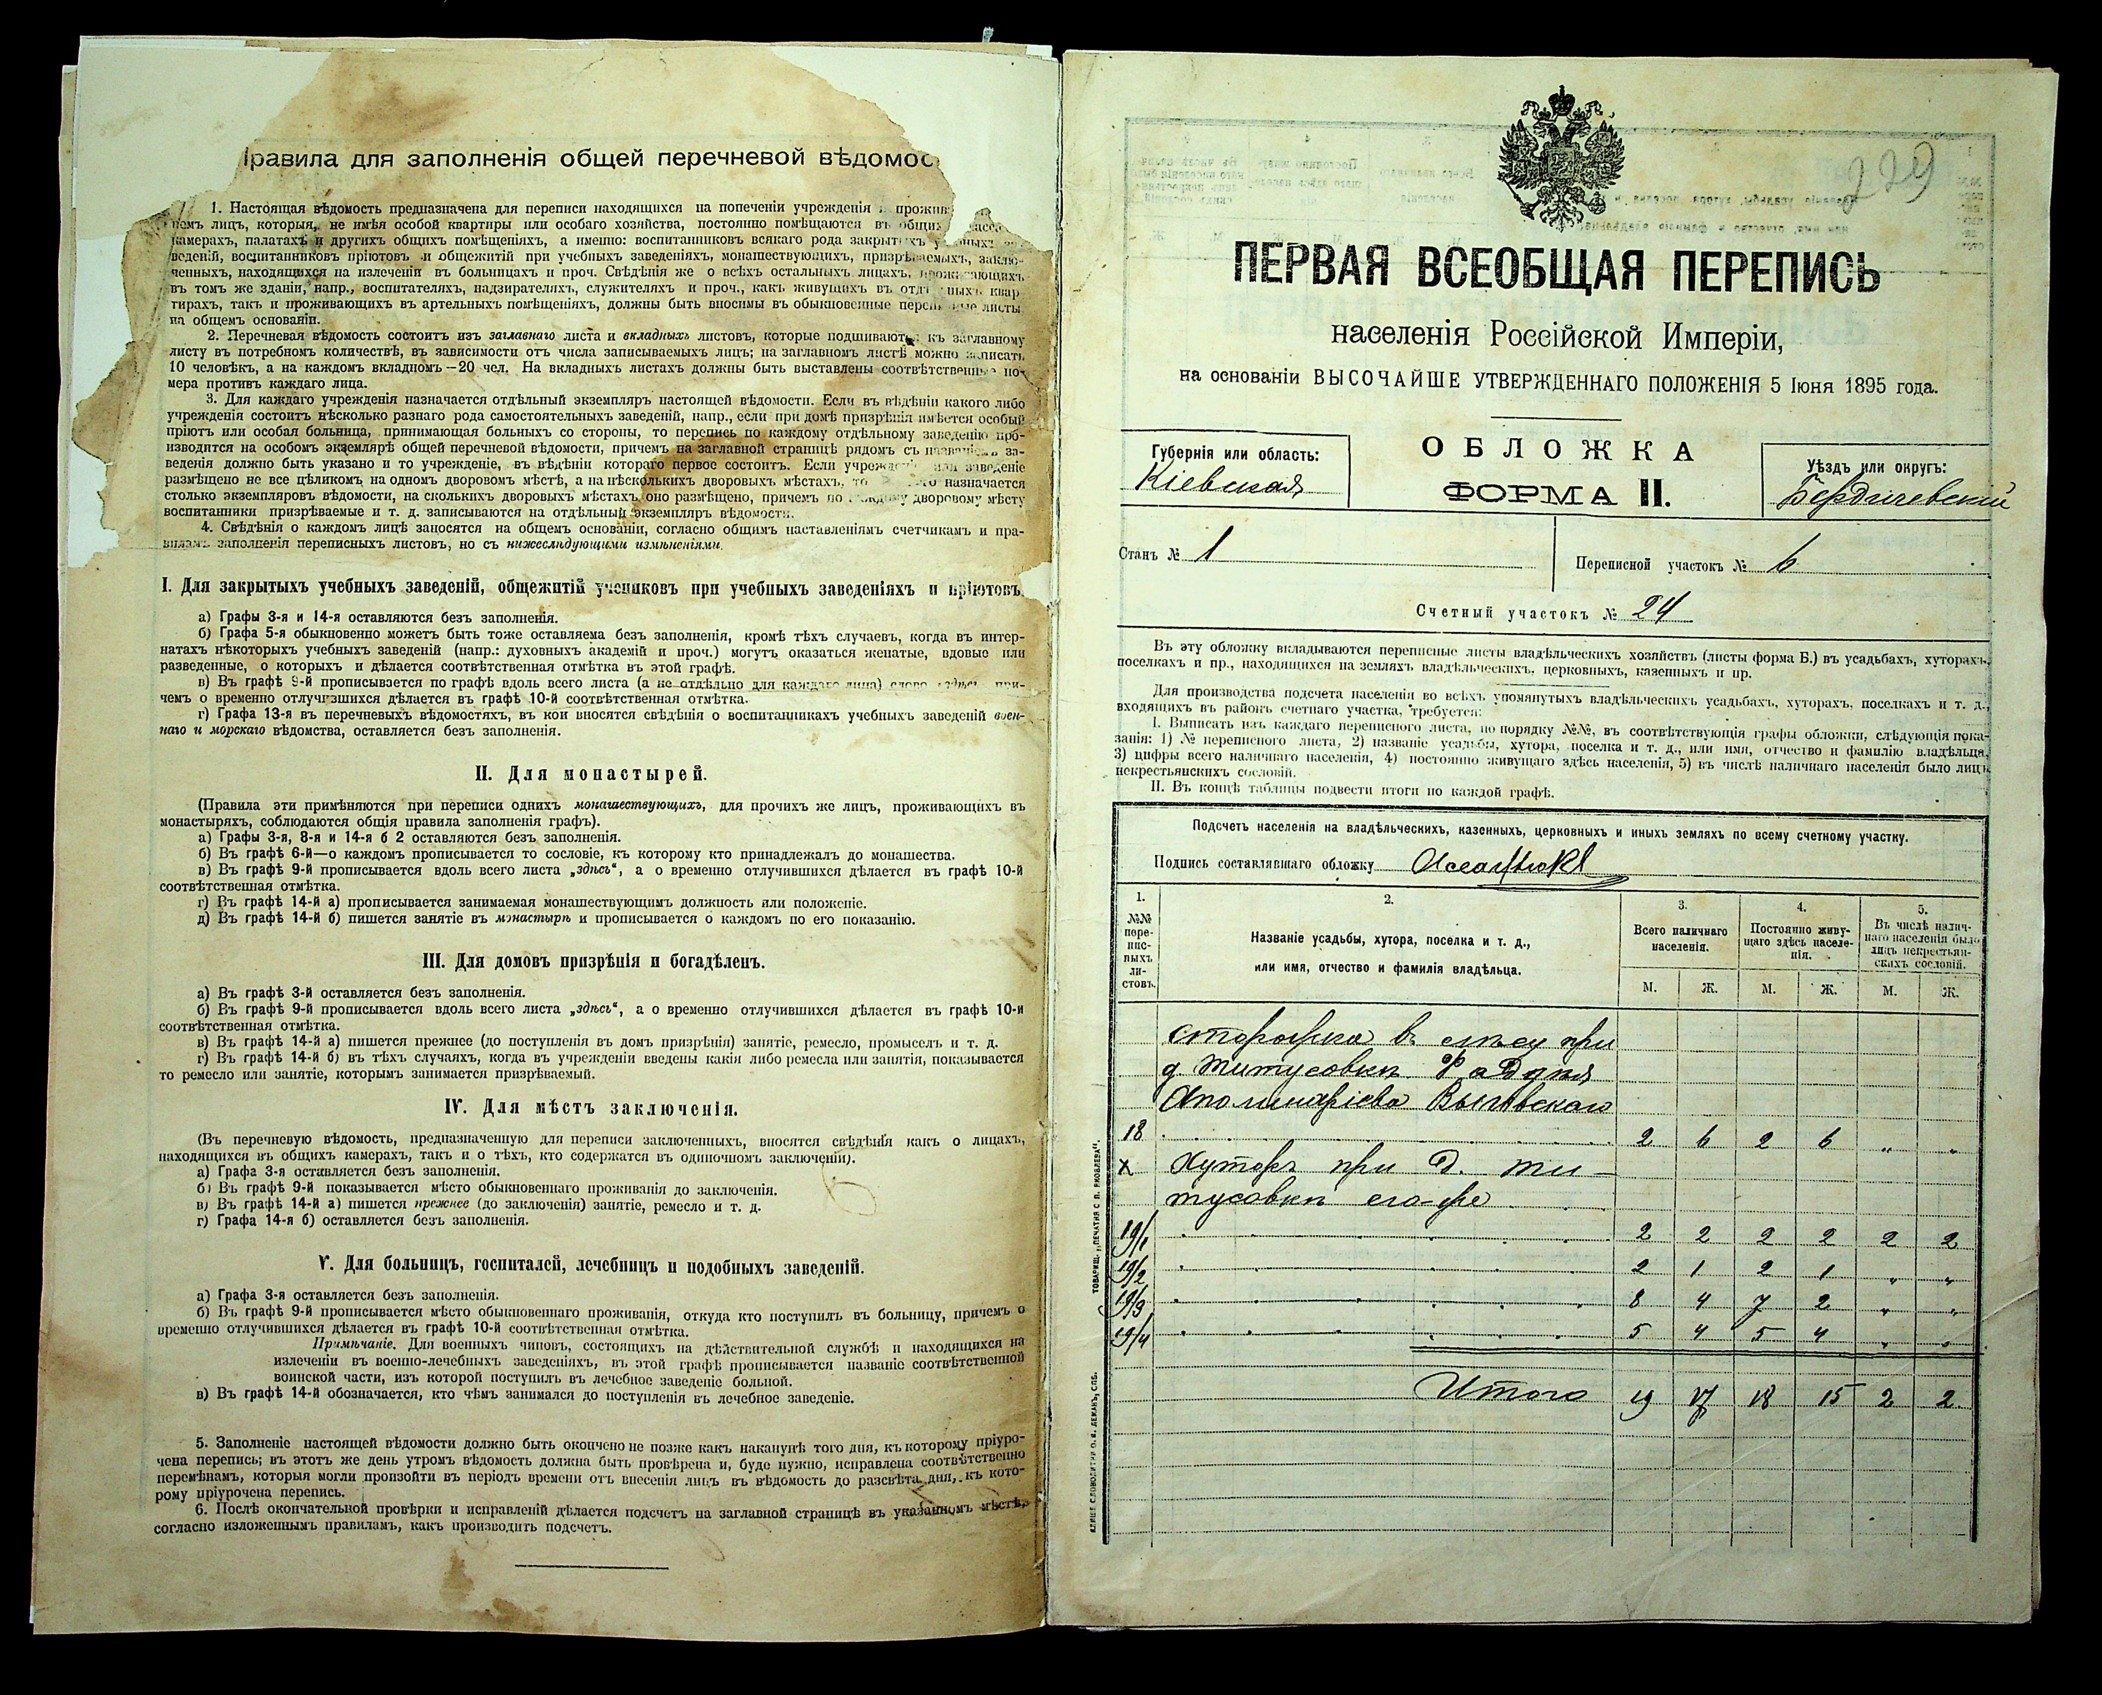 равила для заполненія общей перечневой вѣдомос
1. Настоящая вѣдомость предназначена для переписи находящихся на попеченіи учрежденія
лицъ, которыя, не имѣя особой квартиры или особаго хозяйства, постоянно помѣщаются въ общихъ
камерахъ, палатахъ и другихъ общихъ помѣщеніяхъ, а именно: воспитанниковъ всякаго рода закрытыхъ
веденій, воспитанниковъ пріютовъ и общежитій при учебныхъ заведеніяхъ, монашествующихъ, призрѣваемыхъ, заклю-
ченныхъ, находящихся на излеченіи въ больницахъ и проч. Свѣдѣнія же о всѣхъ остальныхъ лицахъ, проживающихъ
въ томъ же зданіи, напр., воспитателяхъ, надзирателяхъ, служителяхъ и проч., какъ живущихъ въ отдѣльныхъ квар
тирахъ, такъ и проживающихъ въ артельныхъ помѣщеніяхъ, должны быть вносимы въ обыкновенные переписные листы
на общемъ основаніи.
2. Перечневая вѣдомость состоитъ изъ заглавнаго листа и вкладныхъ листовъ, которые подшиваются къ заглавному
листу въ потребномъ количествѣ, въ зависимости отъ числа записываемыхъ лицъ; на заглавномъ листѣ можно записать
10 человѣкъ, а на каждомъ вкладномъ—20 чел. На вкладныхъ листахъ должны быть выставлены соотвѣтственные но-
мера противъ каждаго лица.
3. Для каждаго учрежденія назначается отдѣльный экземпляръ настоящей вѣдомости. Если въ вѣдѣніи какого либо
учрежденія состоитъ нѣсколько разнаго рода самостоятельныхъ заведеній, напр., если при домѣ призрѣнія имѣется особый
пріютъ или особая больница, принимающая больныхъ со стороны, то перепись по каждому отдѣльному заведенію про-
изводится на особомъ экземплярѣ общей перечневой вѣдомости, причемъ на заглавной страницѣ рядомъ съ названіемъ за-
веденія должно быть указано и то учрежденіе, въ вѣдѣніи котораго первое состоитъ. Если учрежденіе или заведеніе
размѣщено не все цѣликомъ на одномъ дворовомъ мѣстѣ, а на нѣсколькихъ дворовыхъ мѣстахъ, то назначается
столько экземпляровъ вѣдомости, на сколькихъ дворовыхъ мѣстахъ оно размѣщено, причемъ по каждому дворовому мѣсту
воспитанники призрѣваемые и т. д. записываются на отдѣльный экземпляръ вѣдомости.
4. Свѣдѣнія о каждомъ лицѣ заносятся на общемъ основаніи, согласно общимъ наставленіямъ счетчикамъ и пра-
виламъ заполненія переписныхъ листовъ, но съ нижеслѣдующими измѣненіями.
I. Для закрытыхъ учебныхъ заведеній, общежитій учениковъ при учебныхъ заведеніяхъ и пріютовъ.
а) Графы 3-я и 14-я оставляются безъ заполненія.
б) Графа 5-я обыкновенно можетъ быть тоже оставляема безъ заполненія, кромѣ тѣхъ случаевъ, когда въ интер-
натахъ нѣкоторыхъ учебныхъ заведеній (напр.: духовныхъ академій и проч.) могутъ оказаться женатые, вдовые или
разведенные, о которыхъ и дѣлается соотвѣтственная отмѣтка въ этой графѣ.
в) Въ графѣ 9-й прописывается по графѣ вдоль всего листа (а не отдѣльно для каждаго лица) слово „здѣсь", при-
чемъ о временно отлучившихся дѣлается въ графѣ 10-й соотвѣтственная отмѣтка.
г) Графа 13-я въ перечневыхъ вѣдомостяхъ, въ кои вносятся свѣдѣнія о воспитанникахъ учебныхъ заведеній воен-
наго и морскаго вѣдомства, оставляется безъ заполненія.
II. Для монастырей.
(Правила эти примѣняются при переписи однихъ монашествующихъ, для прочихъ же лицъ, проживающихъ въ
монастыряхъ, соблюдаются общія правила заполненія графъ).
а) Графы 3-я, 8-я и 14-я б 2 оставляются безъ заполненія.
б) Въ графѣ 6-й—о каждомъ прописывается то сословіе, къ которому кто принадлежалъ до монашества.
в) Въ графѣ 9-й прописывается вдоль всего листа „здѣсь", а о временно отлучившихся дѣлается въ графѣ 10-й
соотвѣтственная отмѣтка.
г) Въ графѣ 14-й а) прописывается занимаемая монашествующимъ должность или положеніе.
д) Въ графѣ 14-й б) пишется занятіе въ монастырѣ и прописывается о каждомъ по его показанію.
III. Для домовъ призрѣнія и богадѣленъ.
а) Въ графѣ 3-й оставляется безъ заполненія.
б) Въ графѣ 9-й прописывается вдоль всего листа „здѣсь", а о временно отлучившихся дѣлается въ графѣ 10-й
соотвѣтственная отмѣтка.
в) Въ графѣ 14-й а) пишется прежнее (до поступленія въ домъ призрѣнія) занятіе, ремесло, промыселъ и т. д.
г) Въ графѣ 14-й б) въ тѣхъ случаяхъ, когда въ учрежденіи введены какія либо ремесла или занятія, показывается
то ремесло или занятіе, которымъ занимается призрѣваемый.
IV. Для мѣстъ заключенія.
(Въ перечневую вѣдомость, предназначенную для переписи заключенныхъ, вносятся свѣдѣнія какъ о лицахъ,
находящихся въ общихъ камерахъ, такъ и о тѣхъ, кто содержатся въ одиночномъ заключеніи).
а) Графа 3-я оставляется безъ заполненія.
б) Въ графѣ 9-й показывается мѣсто обыкновеннаго проживанія до заключенія.
в) Въ графѣ 14-й а) пишется прежнее (до заключенія) занятіе, ремесло и т. д.
г) Графа 14-я б) оставляется безъ заполненія.
V. Для больницъ, госпиталей, лечебницъ и подобныхъ заведеній.
а) Графа 3-я оставляется безъ заполненія.
б) Въ графѣ 9-й прописывается мѣсто обыкновеннаго проживанія, откуда кто поступилъ въ больницу, причемъ о
временно отлучившихся дѣлается въ графѣ 10-й соотвѣтственная отмѣтка.
Примѣчаніе. Для военныхъ чиновъ, состоящихъ на дѣйствительной службѣ и находящихся на
излеченіи въ военно-лечебныхъ заведеніяхъ, въ этой графѣ прописывается названіе соотвѣтственной
воинской части, изъ которой поступилъ въ лечебное заведеніе больной.
в) Въ графѣ 14-й обозначается, кто чѣмъ занимался до поступленія въ лечебное заведеніе.
5. Заполненіе настоящей вѣдомости должно быть окончено не позже какъ наканунѣ того дня, къ которому пріуро-
чена перепись; въ этотъ же день утромъ вѣдомость должна быть провѣрена и, буде нужно, исправлена соотвѣтственно
перемѣнамъ, которыя могли произойти въ періодъ времени отъ внесенія лицъ въ вѣдомость до разсвѣта дня, къ кото-
рому пріурочена перепись.
6. Послѣ окончательной провѣрки и исправленій дѣлается подсчетъ на заглавной страницѣ въ указанномъ мѣстѣ,
согласно изложеннымъ правиламъ, какъ производить подсчетъ.
229
ПЕРВАЯ ВСЕОБЩАЯ ПЕРЕПИСЬ
населенія Россійской Имперіи,
на основаніи ВЫСОЧАЙШЕ УТВЕРЖДЕННАГО ПОЛОЖЕНІЯ 5 Іюня 1895 года.
Губернія или область:
Кіевская
ОБЛОЖКА
ФОРМА II.
Уѣздъ или округъ:
Бердичевскій
Станъ № 1
Переписной участокъ № 6
Счетный участокъ № 24
Въ эту обложку вкладываются переписные листы владѣльческихъ хозяйствъ (листы форма Б.) въ усадьбахъ, хуторахъ,
поселкахъ и пр., находящихся на земляхъ владѣльческихъ, церковныхъ, казенныхъ и пр.
Для производства подсчета населенія во всѣхъ упомянутыхъ владѣльческихъ усадьбахъ, хуторахъ, поселкахъ и т. д.,
входящихъ въ районъ счетнаго участка, требуется:
I. Выписать изъ каждаго переписнаго листа, по порядку №№, въ соотвѣтствующія графы обложки, слѣдующія пока-
занія: 1) № переписного листа, 2) названіе усадьбы, хутора, поселка и т. д., или имя, отчество и фамилію владѣльца,
3) цифры всего наличнаго населенія, 4) постоянно живущаго здѣсь населенія, 5) въ числѣ наличнаго населенія было лицъ
некрестьянскихъ сословій.
II. Въ концѣ таблицы подвести итоги по каждой графѣ.
Подсчетъ населенія на владѣльческихъ, казенныхъ, церковныхъ и иныхъ земляхъ по всему счетному участку.
Подпись составлявшаго обложку
1. 2. 3. 4. 5.
№№ пере-пис-ныхъ ли-стовъ.
Названіе усадьбы, хутора, поселка и т. д.,
или имя, отчество и фамилія владѣльца.
Всего наличнаго населенія.
Постоянно живу-щаго здѣсь населе-нія.
Въ числѣ налич-наго населенія было лицъ некрестьян-скихъ сословій.
М. Ж. М. Ж. М. Ж.
Сторожка въ лѣсу при
д. Титусовкѣ Фаддѣя
Аполинаріева Выговскаго
18 2 6 2 6 „ „
х Хуторъ при д. Ти-
тусовкѣ его-же
19/1 2 2 2 2 2 2
19/2 2 1 2 1 „ „
19/3 8 4 7 2 „ „
19/4 5 4 5 4 „ „
Итого 19 17 18 15 2 2